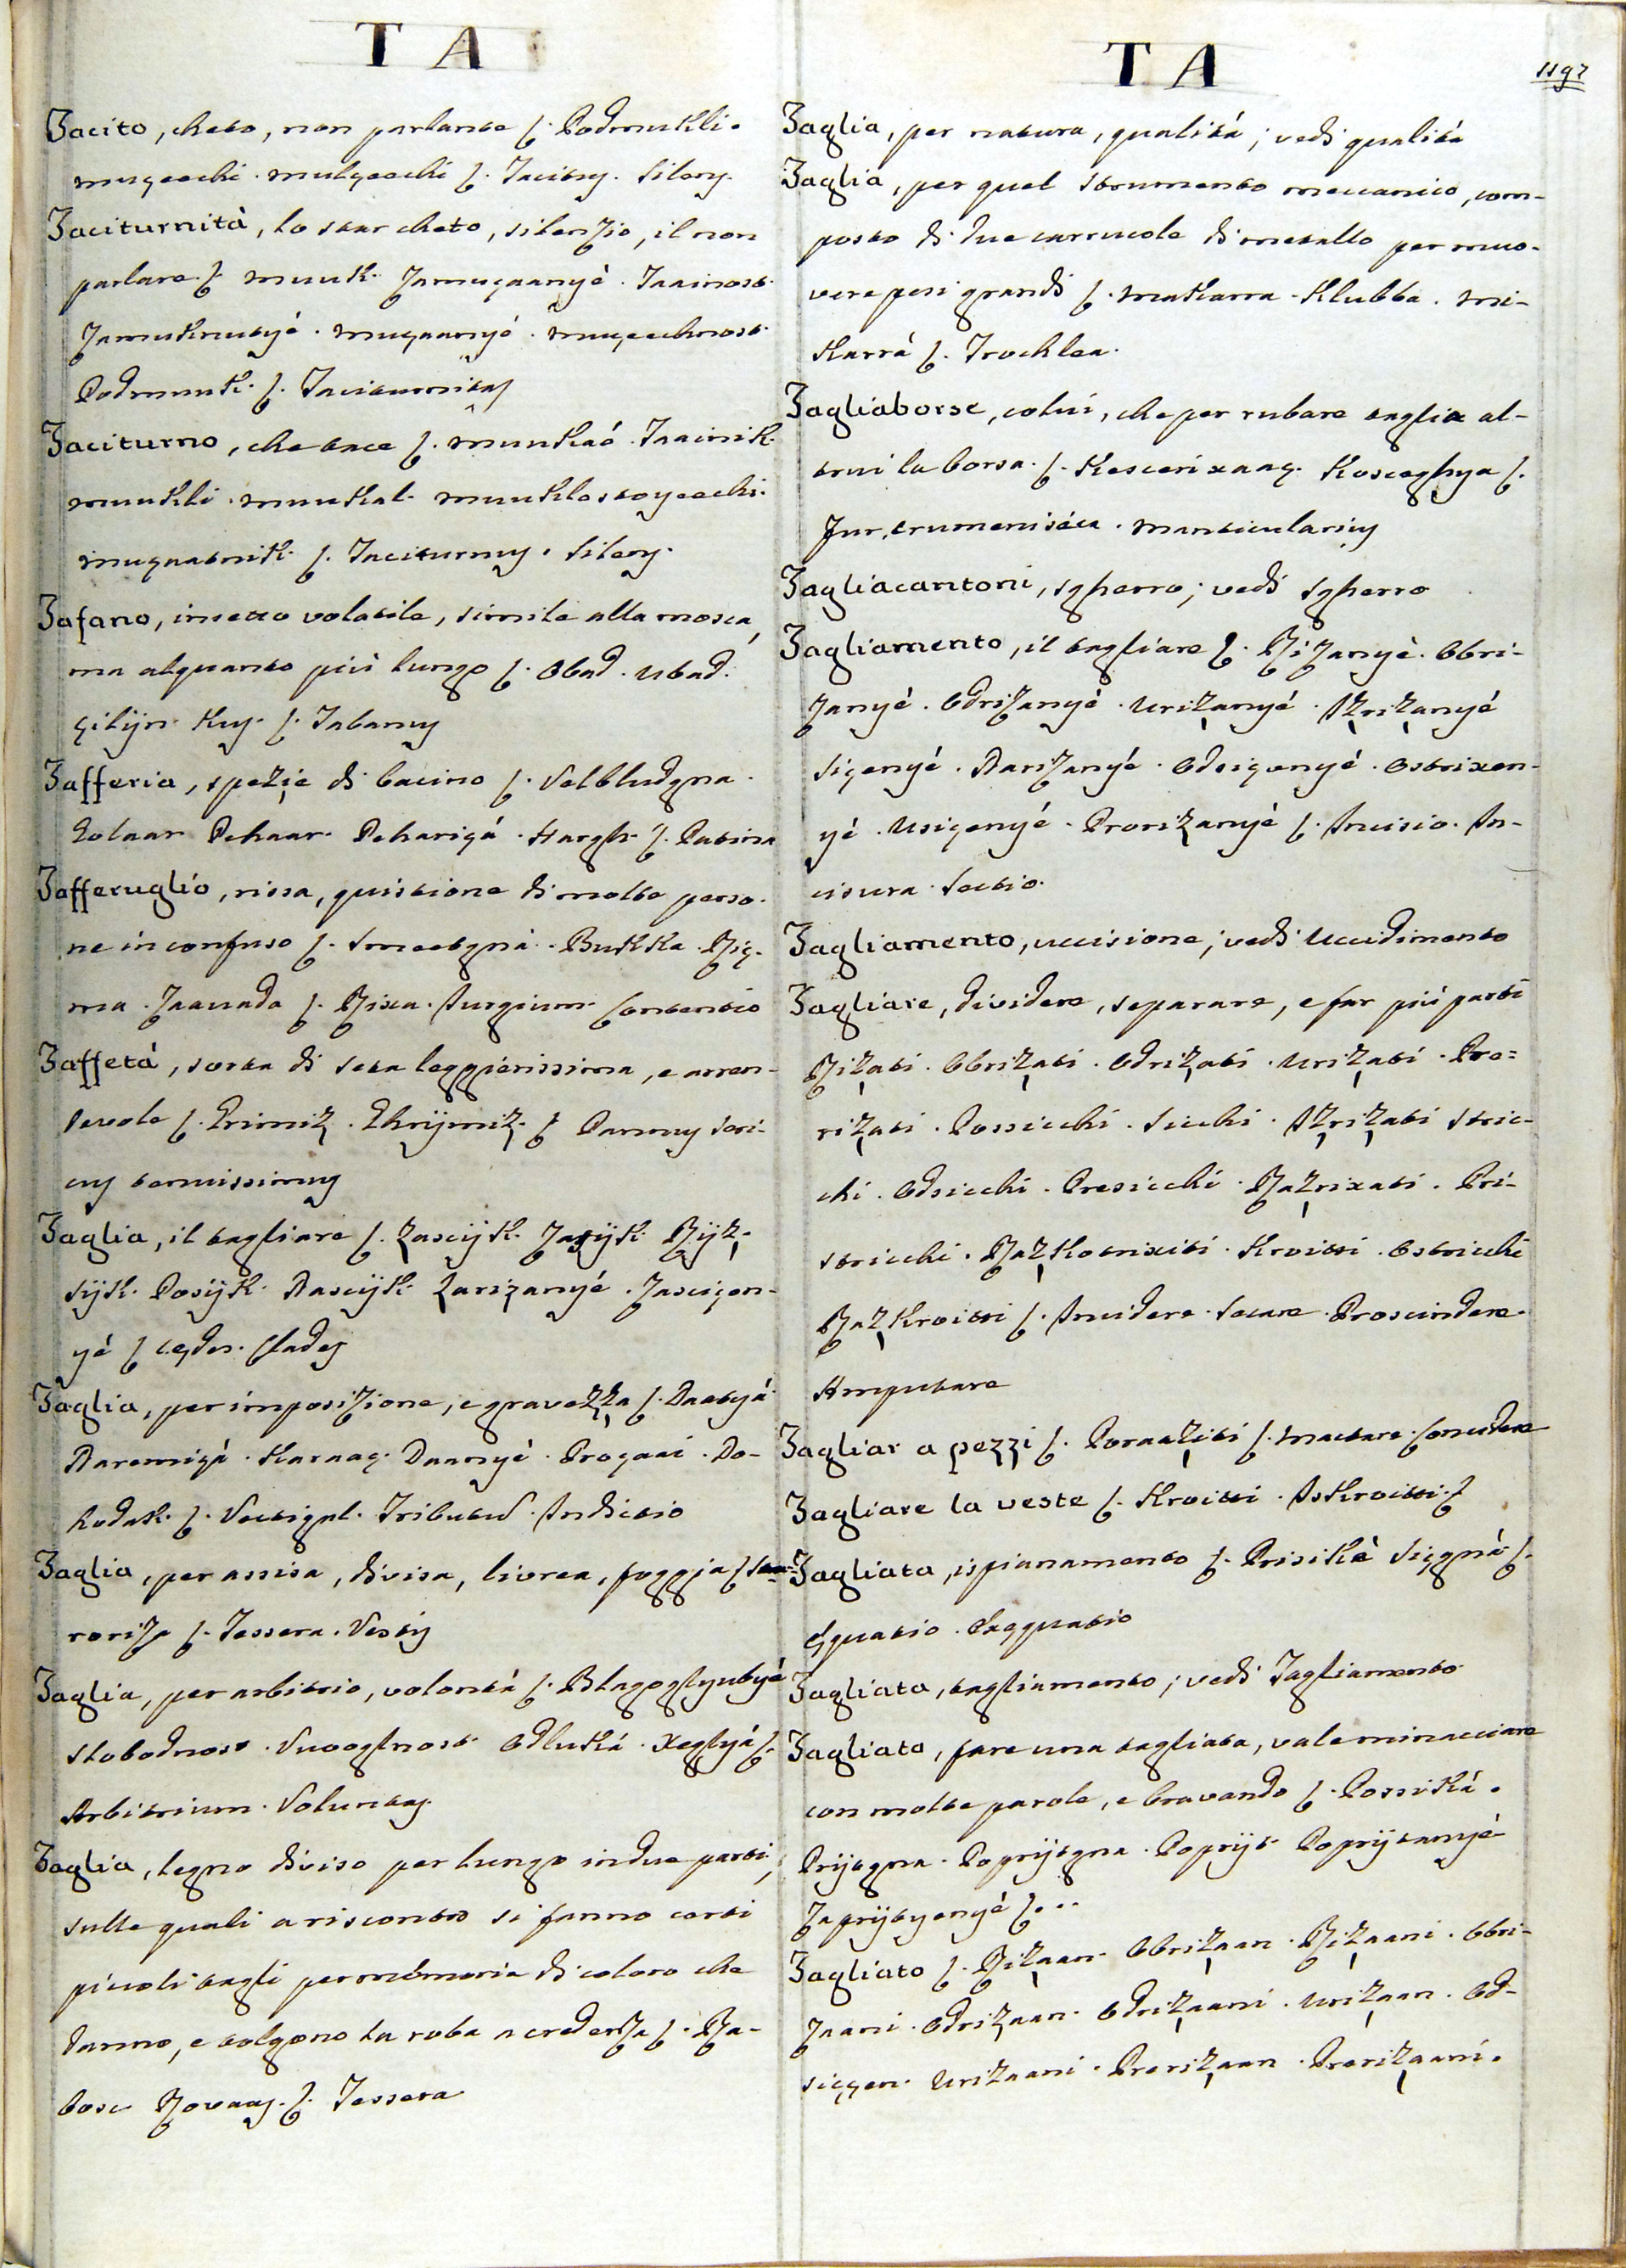 T A
Tacito, cheto, non parlante ſ. Podmukli.
muçecchi. mulçecchi ſ. Tacitus. Silens.
Taciturnità, lo star cheto, silenzio, il non
parlare ſ. muuk. Zamuçaanyé. Taainost.
Zamuknutyé. muçaanyé. muçecchnost.
Podmuuk. ſ. Taciturnitas
Taciturno, che tace ſ. muukaó. Taainik.
muukli. muukal. muuklostoyecchi.
muçaatnik. ſ. Taciturnus. Silens.
Tafano, insetto volatile, simile alla mosca,
ma alquanto più lungo ſ. Obad. Ubad.
çilijn. Kus. ſ. Tabanus
Tafferia, spezie di bacino ſ. Velbludgna.
Zolaar. Pehaar. Pehariçá. Hargh. ſ. Patina
Tafferuglio, rissa, quistione di molte perso-
ne in confuso ſ. Smeetgna. Bukka. Riç-
ma. Zaavada ſ. Rixa. Jurgium. Contentio
Taffetá, sorta di seta leggierissima, e arren-
devole ſ. Primiz. Ehrijmiz. ſ. Pannus seri-
cus tenuissimus
Taglia, il tagliare ſ. Zascijk. Zasijk. Rijz.
Sijk. Posijk. Rascijk. Zarizanyé. Zasciçen-
yé ſ. Cædes. Clades
Taglia, per imposizione, e gravezza ſ. Daatyá.
Daremiçá. Haraaç. Daanyé. Proçaai. Do-
hodak. ſ. Vectigal. Tributus. Indictio
Taglia, per assisa, divisa, livrea, foggia ſ.
roriza ſ. Tessera. Vestis
Taglia, per arbitrio, volontá ſ. Blagoglyubyé
Slobodnost. Svvoglnost. Odluká. Xeglyá ſ.
Arbitrium. Voluntas.
Taglia, legno diviso per lungo in due parti,
sulle quali a riscontro si fanno certi
piccoli tagli per memoria di coloro che
danno, e tolgono la roba a credenza ſ. Ra-
bosc Rovaas. ſ. Tessera
T A
1197
Taglia, per natura, qualitá; vedi qualitá
Taglia, per quel strumento meccanico, com-
posto di due carrucole di metallo per muo-
vere pesi grandi ſ. Makarra. Klubba. Mi-
karrá ſ. Trochlea.
Tagliaborse, colui, che per rubare taglia al-
trui la borsa. ſ. Kescerixaaç. Kosceghya ſ.
Fur, crumeniseca. Manticularius
Tagliacantoni, sgherro; vedi sgherro
Tagliamento, il tagliare ſ. Rizanyé. Obri-
zanyé. Odrizanyé. Urizanyé. Izrizanyé
Siçenyé. Narizanyé. Odsiçenyé. Ostrixen-
yé. Usiçenyé. Prorizanyé ſ. Incisio. In-
cisura. Sectio.
Tagliamento, uccisione; vedi Uccidimento
Tagliare, dividere, separare, e far piú parti
Rizati. Obrizati. Odrizati. Urizati. Pre=
rizati. Possicchi. Sicchi. Izrizati Stric-
chi. Odsicchi. Presicchi. Razrixati. Pri-
stricchi. Razkotrixiti. Kroitti. Ostricchi
Razkroitti ſ. Incidere. Secare. Proscindere.
Amputare
Tagliar a pezzi ſ. Poraaziti ſ. Mactare. Concidere
Tagliare la veste ſ. Kroitti. Iskroitti. ſ.
Tagliata, ispianamento ſ. Prisiká Siçgná ſ.
Æquatio. Exæquatio
Tagliata, tagliamento; vedi Tagliamento
Tagliata, fare una tagliata, vale minacciare
con molte parole, e bravando ſ. Possiká.
Prijtgna. Pogrijtgna. Poprijt. Poprijtanyé
Zaprijtyenyé ſ...
Tagliato ſ. Rizaan. Obrizaan. Rizaani. Obri-
zaani. Odrizaan. Odrizaani. Urizaan. Od-
siçgen. Urizaani. Prerizaan. Prerizaani.